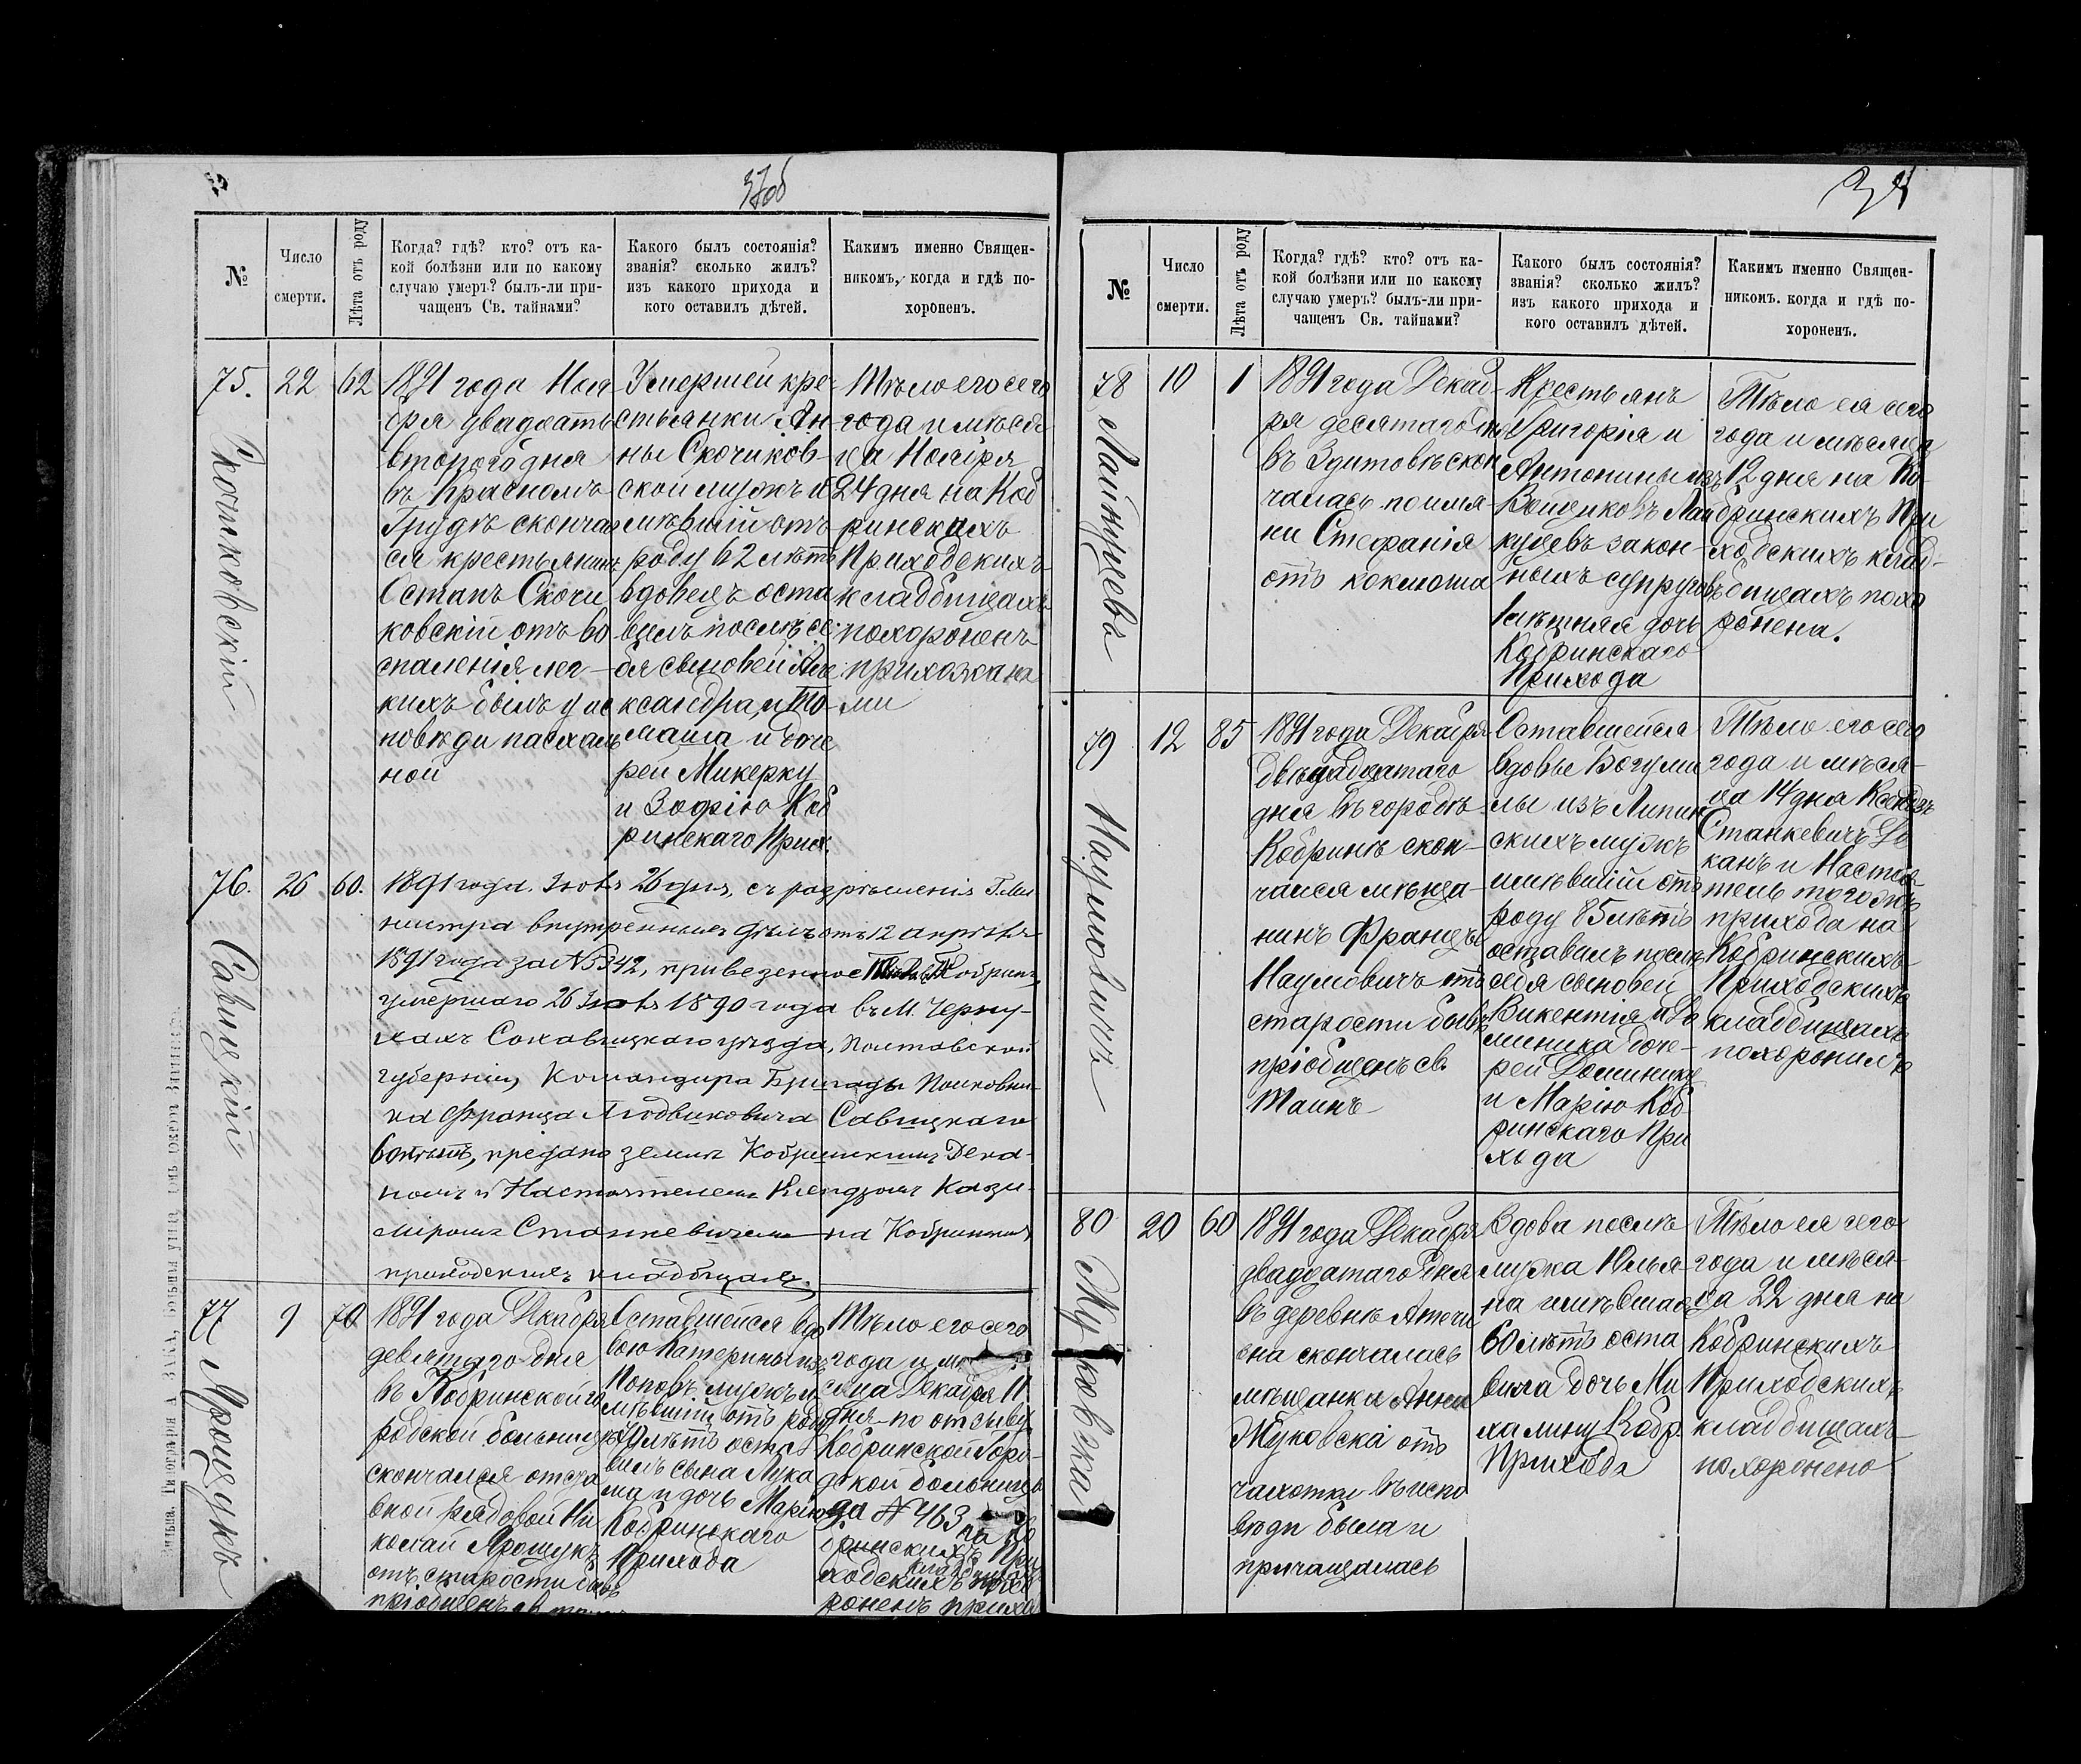 37об
№
Число
смерти.
Лѣта отъ роду
Когда? гдѣ? кто? отъ ка-
кой болѣзни или по какому
случаю умеръ? былъ-ли при-
чащенъ Св. тайнами?
Какого былъ состоянія?
званія? сколько жилъ?
изъ какого прихода и
кого оставилъ дѣтей.
Какимъ именно Священ-
никомъ, когда и гдѣ по-
хороненъ.
75.
Скочиковскій
22
62
1891 года Ноя
бря двадцать
второго дня
въ Красномъ
Грудкѣ скончал
ся крестьянинъ
Остапъ Скочи
ковскій отъ во
спаленія лег-
кихъ былъ у ис
повѣди пасхаль
ной
Умершей кре-
стьянки Ан-
ны Скочиков-
ской мужъ и
мѣвшій отъ
роду 62 лѣтъ
вдовецъ оста
вилъ послѣ се
бя сыновей Але
ксандра, и То-
маша и доче
рей Микерку
и Зофію Коб
ринскаго Прих.
Тѣло его сего
года и мѣся
ца Ноября
24 дня на Коб
ринскихъ
Приходскихъ
кладбищахъ
похороненъ
прихожана
ми
76.
Савицкій
26
60.
1891 года. Іюля 26 дня, съ разрѣшенія Г. Ми
нистра внутреннихъ дѣлъ отъ 12 апрѣля
1891 года за №5342, привезенное Кобринъ,
умершаго 26 Іюля 1890 года въ М. Черну-
хахъ Сохавицкаго уѣзда, Полтавской
губерніи, Командира Бригады Полковни-
ка Франца Людвиковича Савицкаго
60 лѣтъ, предано землѣ Кобринскимъ Дека-
номъ и Настоятелемъ Ксендзомъ Кази-
міромъ Станкевичемъ на Кобринскихъ
приходскихъ кладбищахъ.
77
Ярощукъ
9
70
1891 года Декабря
девятаго дня
въ Кобринской го
родской больницѣ
скончался отста
вной рядовой Ни
колай Ярощукъ
отъ старости былъ
пріобщенъ св.
Оставшейся вдо
вою Катерины изъ
Поповъ мужъ и
мѣвшій отъ роду
70 лѣтъ оста
вилъ сына Лука
ша и дочь Марію
Кобринскаго
Прихода
Тѣло его сего
года и мѣ
сяца Декабря 11
дня по отзыву
Кобринской Горо-
дской больницы
за № 463
на Ко
бринскихъ При
ходскихъ кладбищахъ похо
роненъ прихо
Вильна. Типографія А. ЗАКА, Большая улица
38
№
Число
смерти.
Лѣта отъ роду
Когда? гдѣ? кто? отъ ка-
кой болѣзни или по какому
случаю умеръ? былъ-ли при-
чащенъ Св. тайнами?
Какого былъ состоянія?
званія? сколько жилъ?
изъ какого прихода и
кого оставилъ дѣтей.
Какимъ именно Священ-
никомъ. когда и гдѣ по-
хороненъ.
78
Лайкуцева
10
1
1891 года Декаб-
ря десятаго дня
въ Здитовѣ скон
чалась по имя
ни Стефанія
отъ коклюша
Крестьянъ
Григорія и
Антонины изъ
Войциковъ Лай
куцевъ закон-
ныхъ супруговъ
1 лѣтняя дочь
Кобринскаго
Прихода
Тѣло ея сего
года и мѣсяца
12 дня на Ко-
бринскихъ При
ходскихъ клад-
бищахъ похо
ронена.
79
Наумовичъ
12
85
1891 года Декабря
двѣнадцатаго
дня въ городѣ
Кобринѣ скон-
чался мѣща-
нинъ Францъ
Наумовичъ отъ
старости былъ
пріобщенъ св.
Таинъ
Оставшейся
вдовье Богуми
лы изъ Липин
скихъ мужъ
имѣвшій отъ
роду 85 лѣтъ
оставилъ послѣ
себя сыновей
Викентія и До
миника доче-
рей Доминику
и Марію Коб
ринскаго При
хода
Тѣло его сего
года и мѣся-
ца 14 дня Ксендзъ
Станкевичъ Де
канъ и Настоя
тель тогожъ
прихода на
Кобринскихъ
Приходскихъ
кладбищахъ
похоронилъ
80
Жуковска
20
60
1891 года Декабря
двадцатаго дня
въ деревнѣ
она скончалась
мѣщанка Анна
Жуковска отъ
чахотки въ испо
вѣди была и
причащалась
Вдова послѣ
мужа Юлья-
на имѣвшая
60 лѣтъ оста
вила дочь Ми
халину Кобр.
Прихода
Тѣло ея сего
года и мѣся-
ца 22 дня на
Кобринскихъ
Приходскихъ
кладбищахъ
похоронено